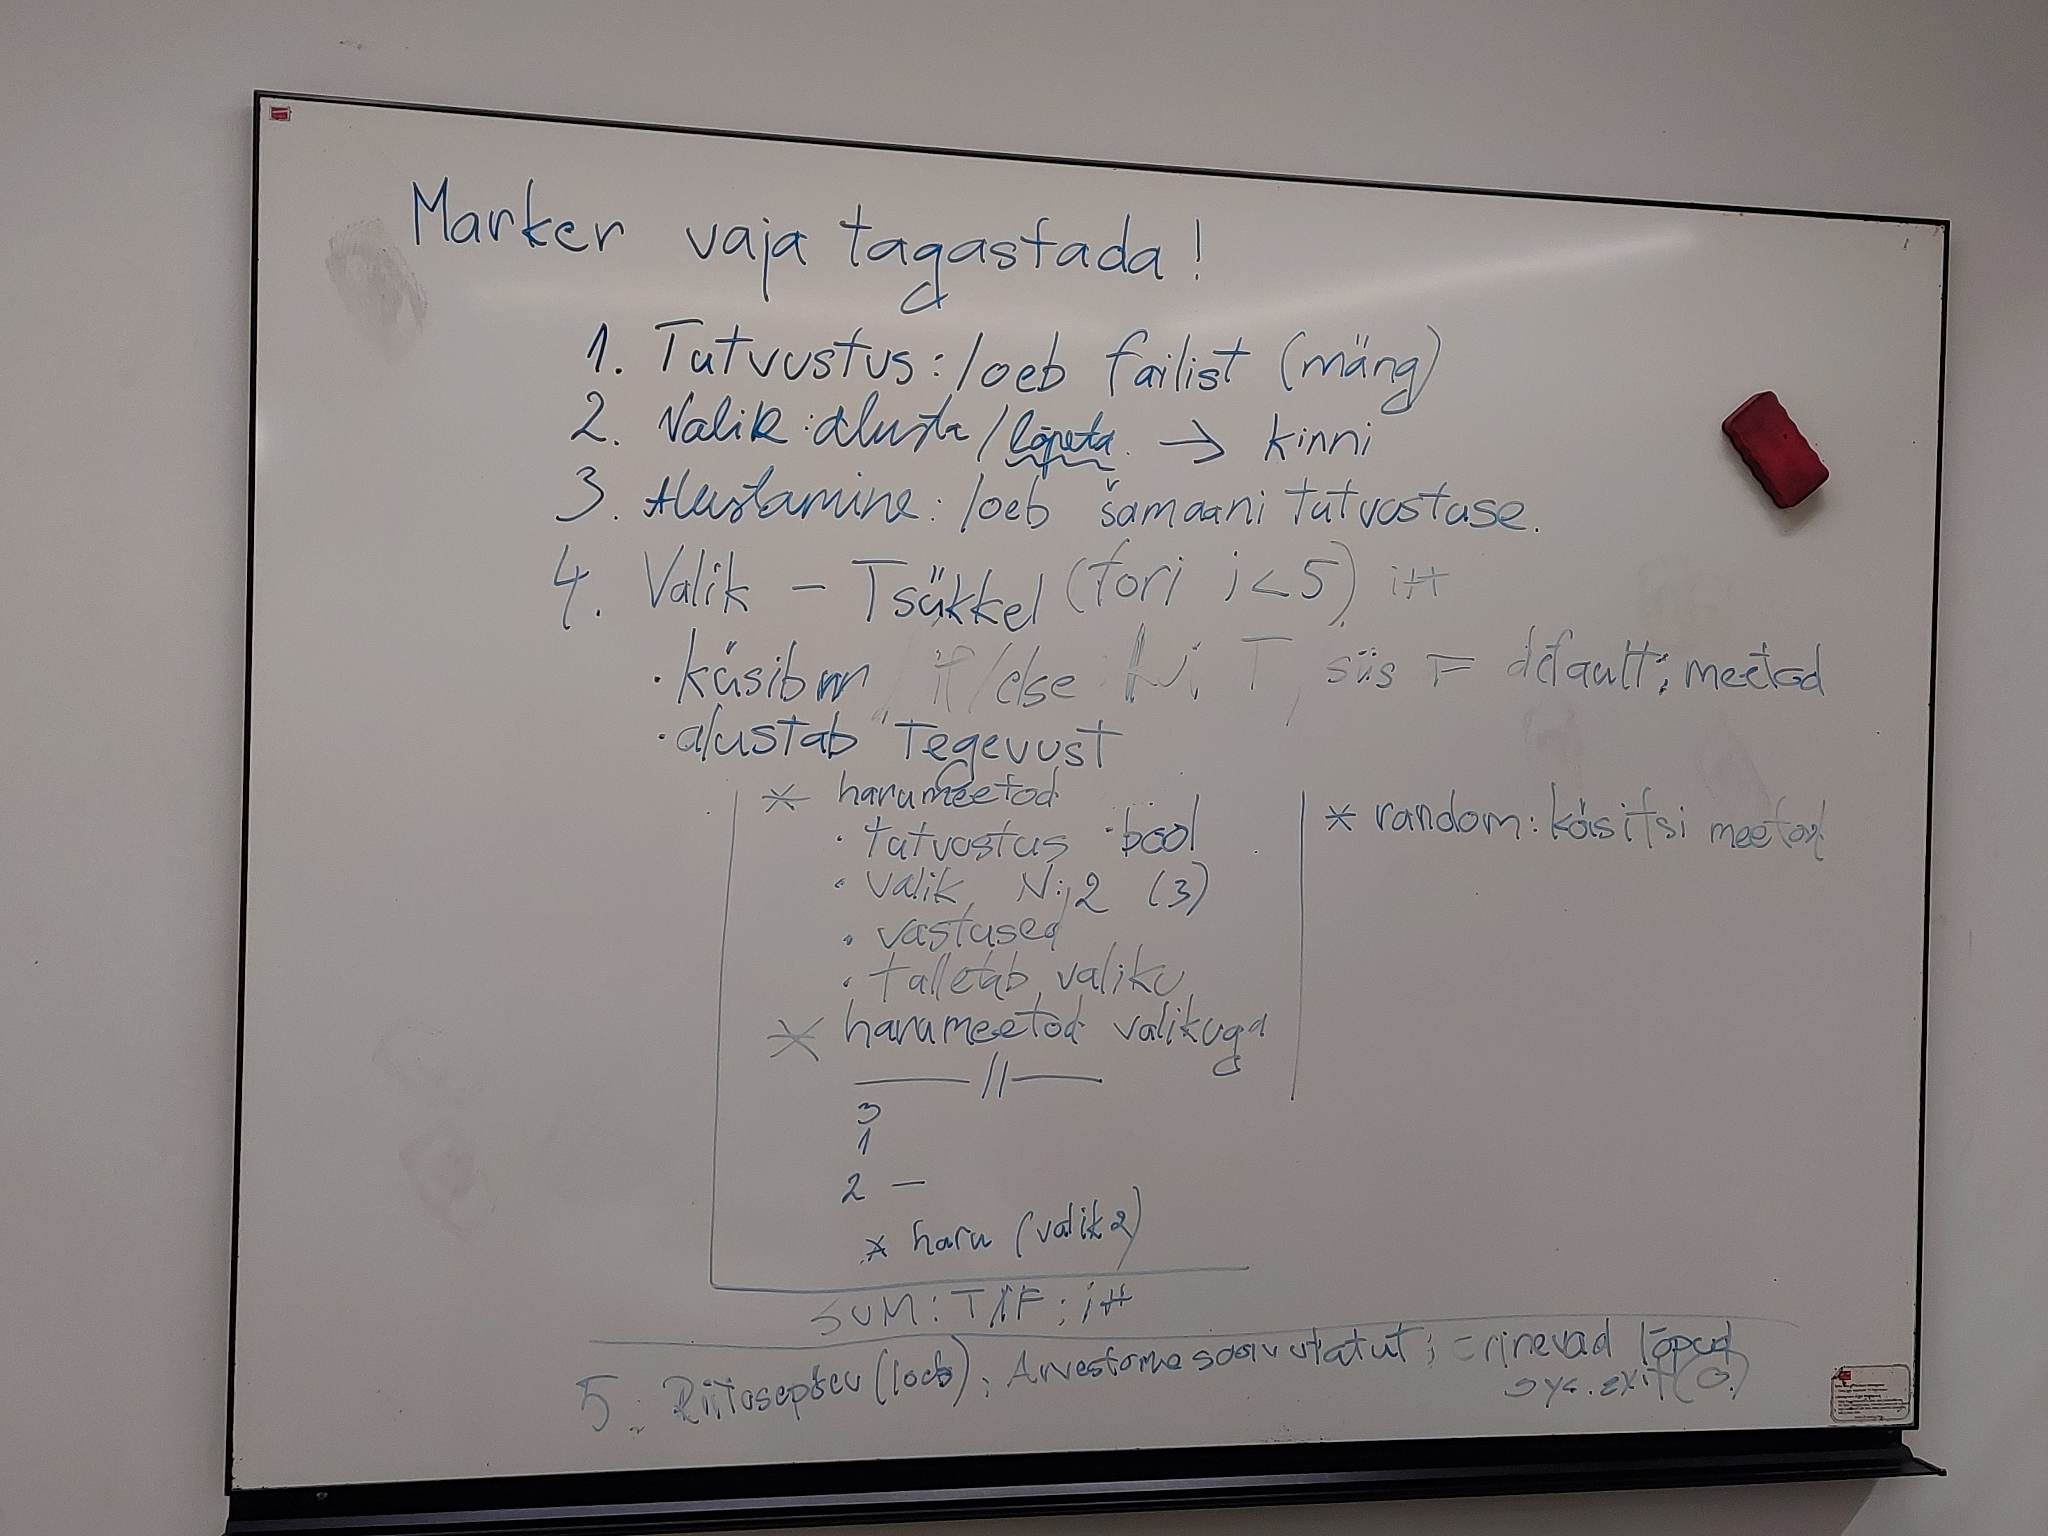 Marker vaja tagastada!
1. Tutvustus: loeb failist (mäng)
2. Valik: alusta / lõpeta. → kinni
3. Alustamine: loeb šamaani tutvustuse.
4. Valik - Tsükkel (for i i<5) i++
• käsib if/else T, siis F default; meetod
• alustab Tegevust
* harumeetod
• tutvustus • bool
• valik N:, 2 (3)
• vastused
• talletab valiku
* harumeetod valikuga
—//—
3
1
2 —
* haru (valik 2)
* random: käsitsi meetod
SUM: T/F; i++
5. (loeb); Erinevad lõpud
sys.exit(0)